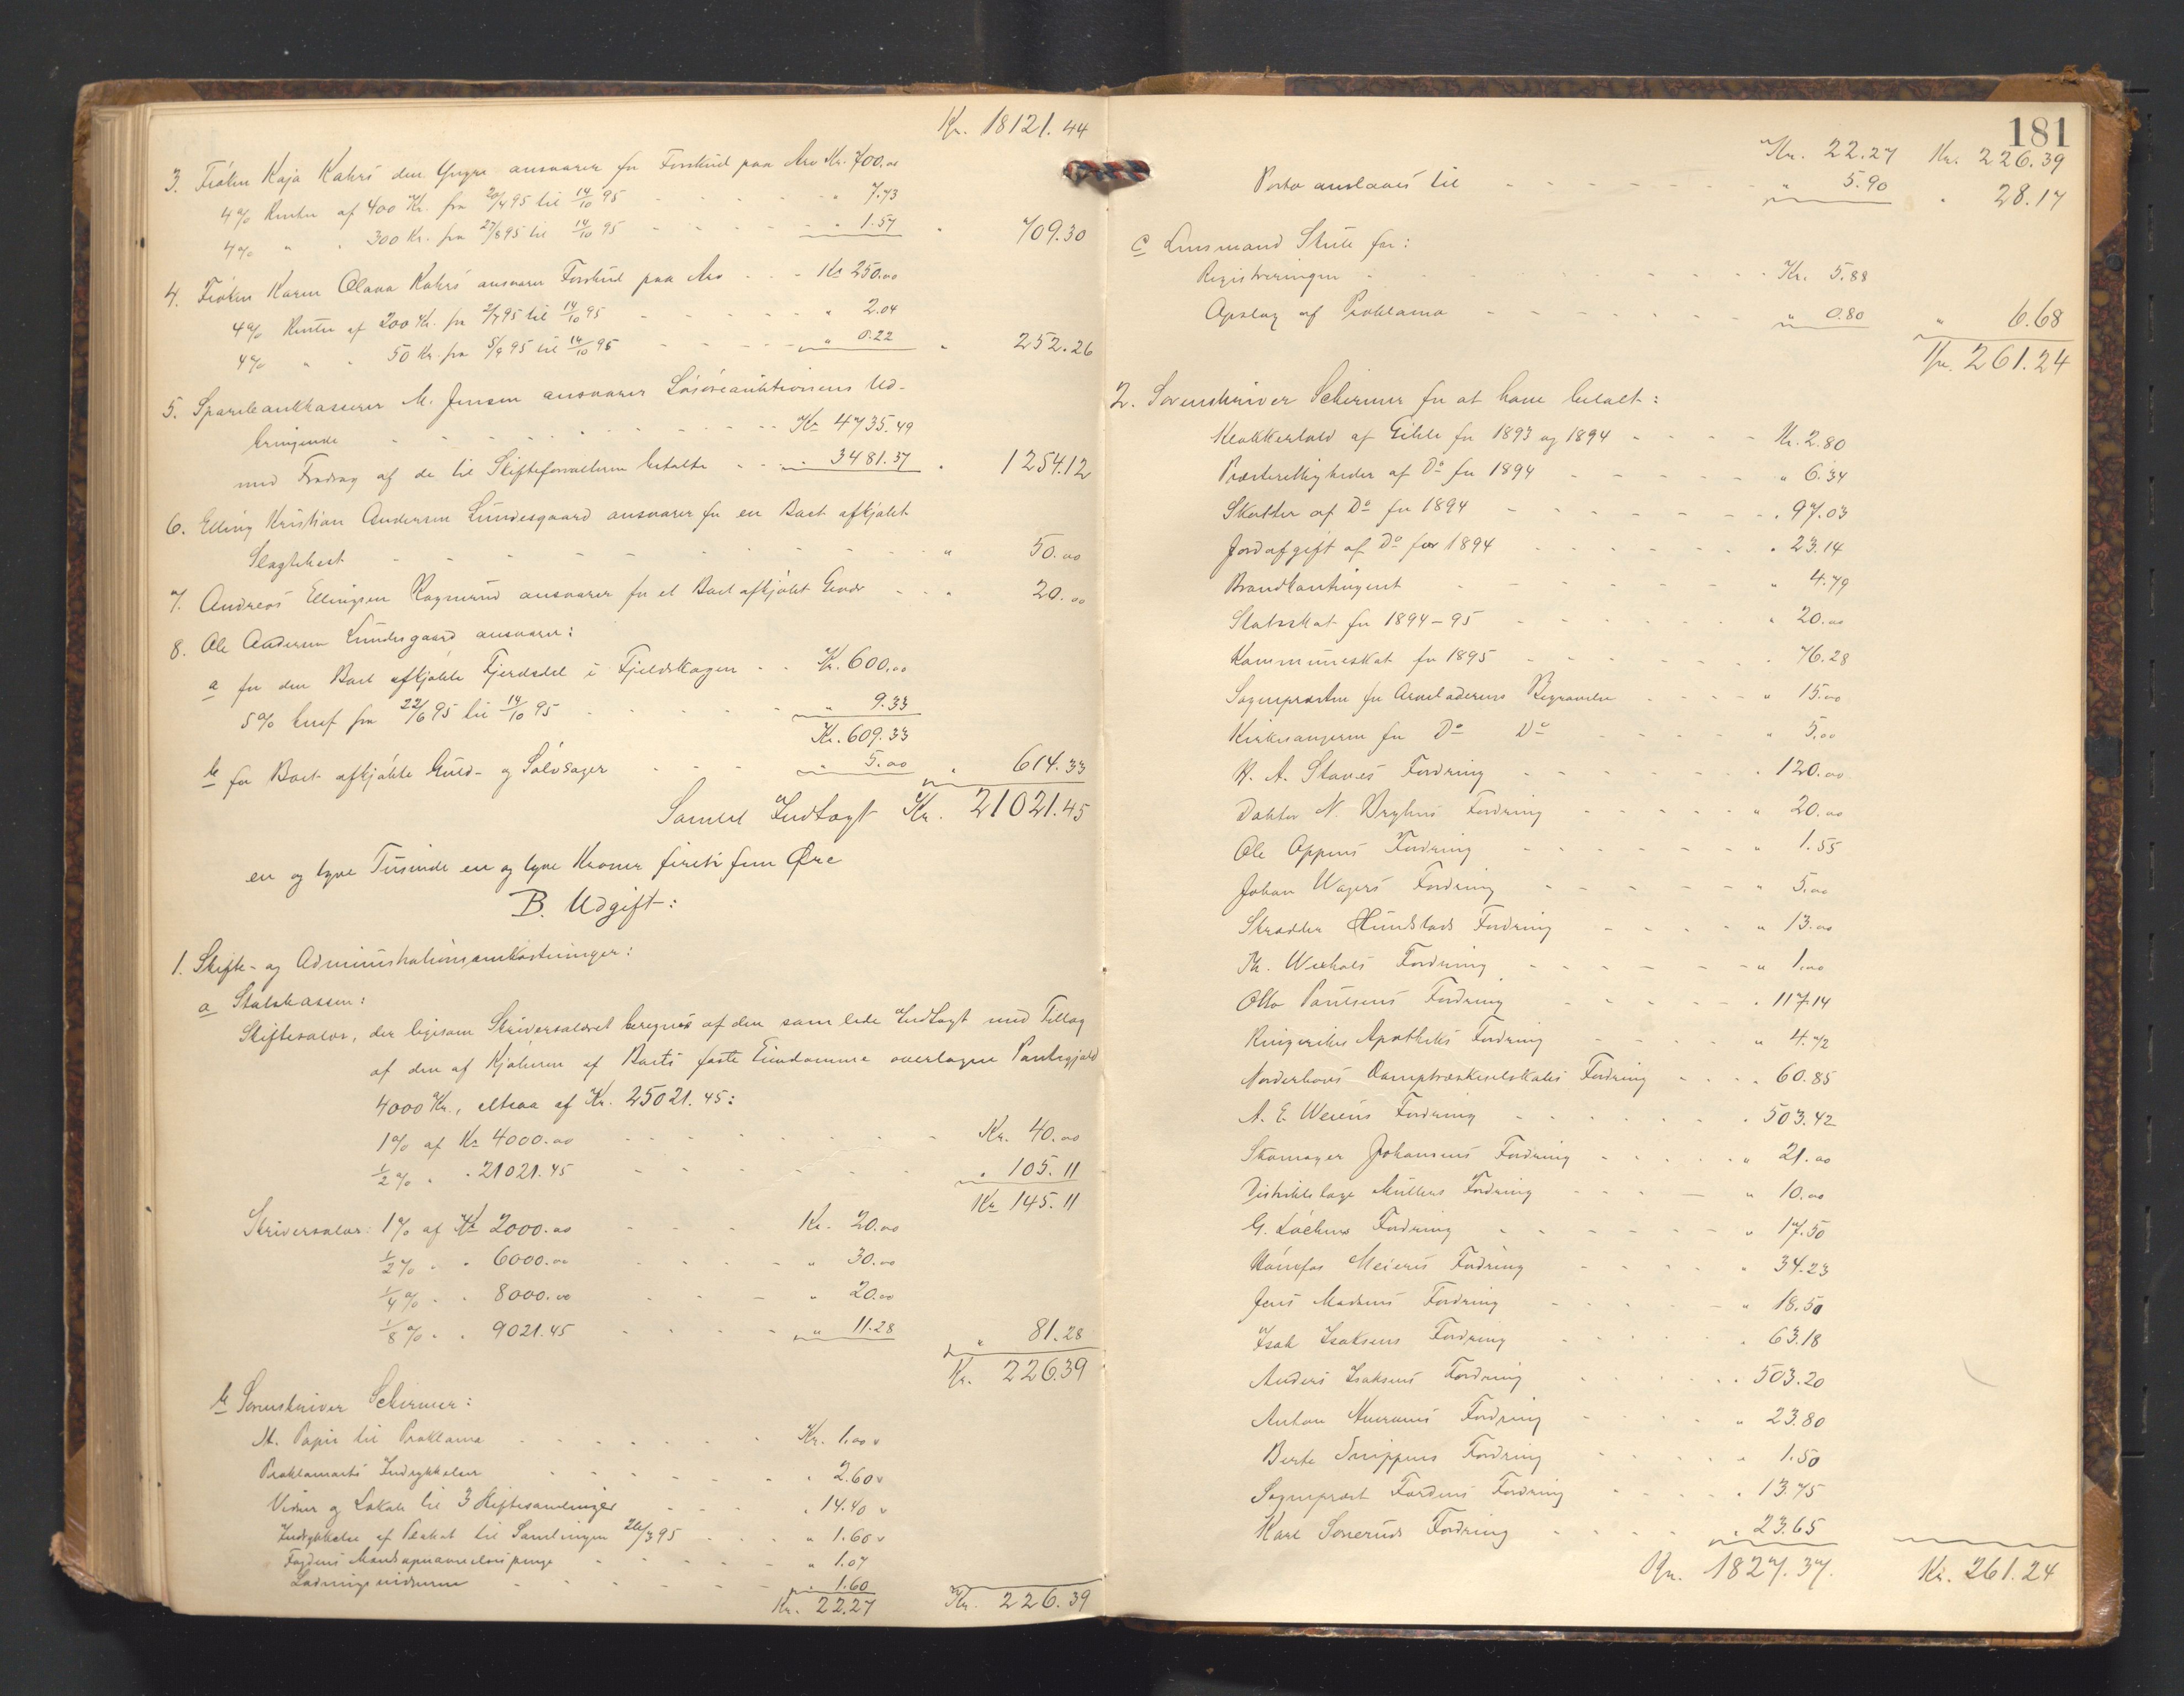 Kr. 18121.44
3. Frøken Kaja Kahrs den Yngre ansvarer for Forskud paa Arv Kr. 700.00
4% Renter af 400 Kr. fra 20/4 95 til 14/10 95 " 7.73
4% " " 300 Kr. fra 27/8 95 til 14/10 95 " 1.57 " 709.30
4. Frøken Karen Olava Kahrs ansvarer Forskud paa Arv Kr 250.00
4% Renter af 200 Kr. fra 2/7 95 til 14/10 95 " 2.04
4% " " 50 Kr. fra 5/9 95 til 14/10 95 " 0.22 " 252.26
5. Sparebankkasserer M. Jensen ansvarer Løsøreauktionens Ud-
bringende Kr 4735.49
med Fradrag af de til Skifteforvalteren betalte " 3481.37 " 1254.12
6. Elling Kristian Andersen Lundesgaard ansvarer for en Boet afkjøbt
Slagtehest " 50.00
7. Andreas Ellingsen Ragnerud ansvarer for et Boet afkjøbt " 20.00
8. Ole Andersen Lundesgaard ansvarer:
a for den Boet afkjøbte Fjerdedel i Fjeldskogen Kr. 600.00
5% heraf fra 22/6 95 til 14/10 95 " 9.33
Kr. 609.33
b for Boet afkjøbte Guld- og Sølvsager " 5.00 " 614.33
Samlet Indtægt Kr. 21021.45
en og tyve Tusinde en og tyve Kroner firti fem Øre
B. Udgift:
1. Skifte- og Administrationsomkostninger:
a Statskassen:
Skiftesalær, der ligesom Skriversalæret beregnes af den samlede Indtægt med Tillæg
af den af Kjøberen af Boets faste Eiendomme overtagne Pantegjæld
4000 Kr., altsaa af Kr. 25021.45:
1% af Kr 4000.00 Kr. 40.00
1/2% " " 21021.45 " 105.11
Kr 145.11
Skriversalær: 1% af Kr 2000.00 Kr. 20.00
1/2% " " 6000.00 " 30.00
1/4% " " 8000.00 " 20.00
1/8% " " 9021.45 " 11.28 " 81.28
Kr. 226.39
b Sorenskriver Schirmer:
St. Papir til Proklama Kr. 1.00
Proklamaets Indrykkelser " 2.60
Vidner og Lokale til 3 Skiftesamlinger " 14.40
Indrykkelse af Plakat til Samlingen 26/3 95 " 1.60
Fogdens Mandsopnævnelsespenge " 1.07
Ladningsvidnerne " 1.60
Kr. 22.27 Kr. 226.39
181
Kr. 22.27 Kr. 226.39
Porto anslaaes til " 5.90 " 28.17
c Lensmand Skule for:
Registreringen Kr. 5.88
Opslag af Proklama " 0.80 " 6.68
Kr. 261.24
2. Sorenskriver Schirmer for at have betalt:
Klokkertold af Gihle for 1893 og 1894 Kr. 2.80
Præsterettigheder af Do for 1894 " 6.34
Skatter af Do for 1894 " 97.03
Jordafgift af Do for 1894 " 23.14
Brandkontingent " 4.79
Statsskat for 1894-95 " 20.00
Kommuneskat for 1895 " 76.28
Sognepræsten for Arveladerens Begravelse " 15.00
Kirkesangeren for Do Do " 5.00
H. A. Staves Fordring " 120.00
Doktor N. Fordring " 20.00
Ole Oppens Fordring " 1.55
Johan Wagers Fordring " 5.00
Skrædder Hundstads Fordring " 13.00
Th. Fordring " 1.00
Otto Paulsens Fordring " 117.14
Ringerikes Apotheks Fordring " 4.72
Norderhovs Damptræskeselskabs Fordring " 60.85
A. E. Weiens Fordring " 503.42
Skomager Johansens Fordring " 21.00
Distriktslæge Müllers Fordring " 10.00
G. Løchens Fordring " 17.50
Hønefos Meieris Fordring " 34.23
Jens Madsens Fordring " 18.50
Isak Isaksens Fordring " 63.18
Anders Isaksens Fordring " 503.20
Anton Fordring " 23.80
Berte Snippens Fordring " 1.50
Sognepræst Fordring " 13.75
Karl Søreruds Fordring " 23.65
Kr. 1827.37. Kr. 261.24